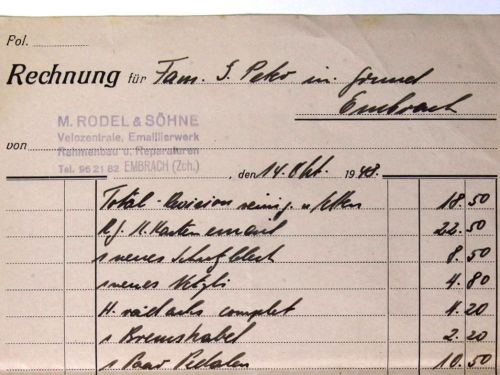 Pol.
Rechnung für Fam. in
Embrach
M. RODEL & SÖHNE
Velozentrale, Emaillierwerk
von Rahmenbau u. Reparaturen
Tel. 96 21 82 EMBRACH (Zch.)
, den 14. Okt. 1948.
Total-Revision 18.50
email 22.50
1 neues Schutzblech 8.50
1 neues 4.80
H. radachs complet 4.20
1 Bremskabel 2.20
1 Paar Pedalen 10.50